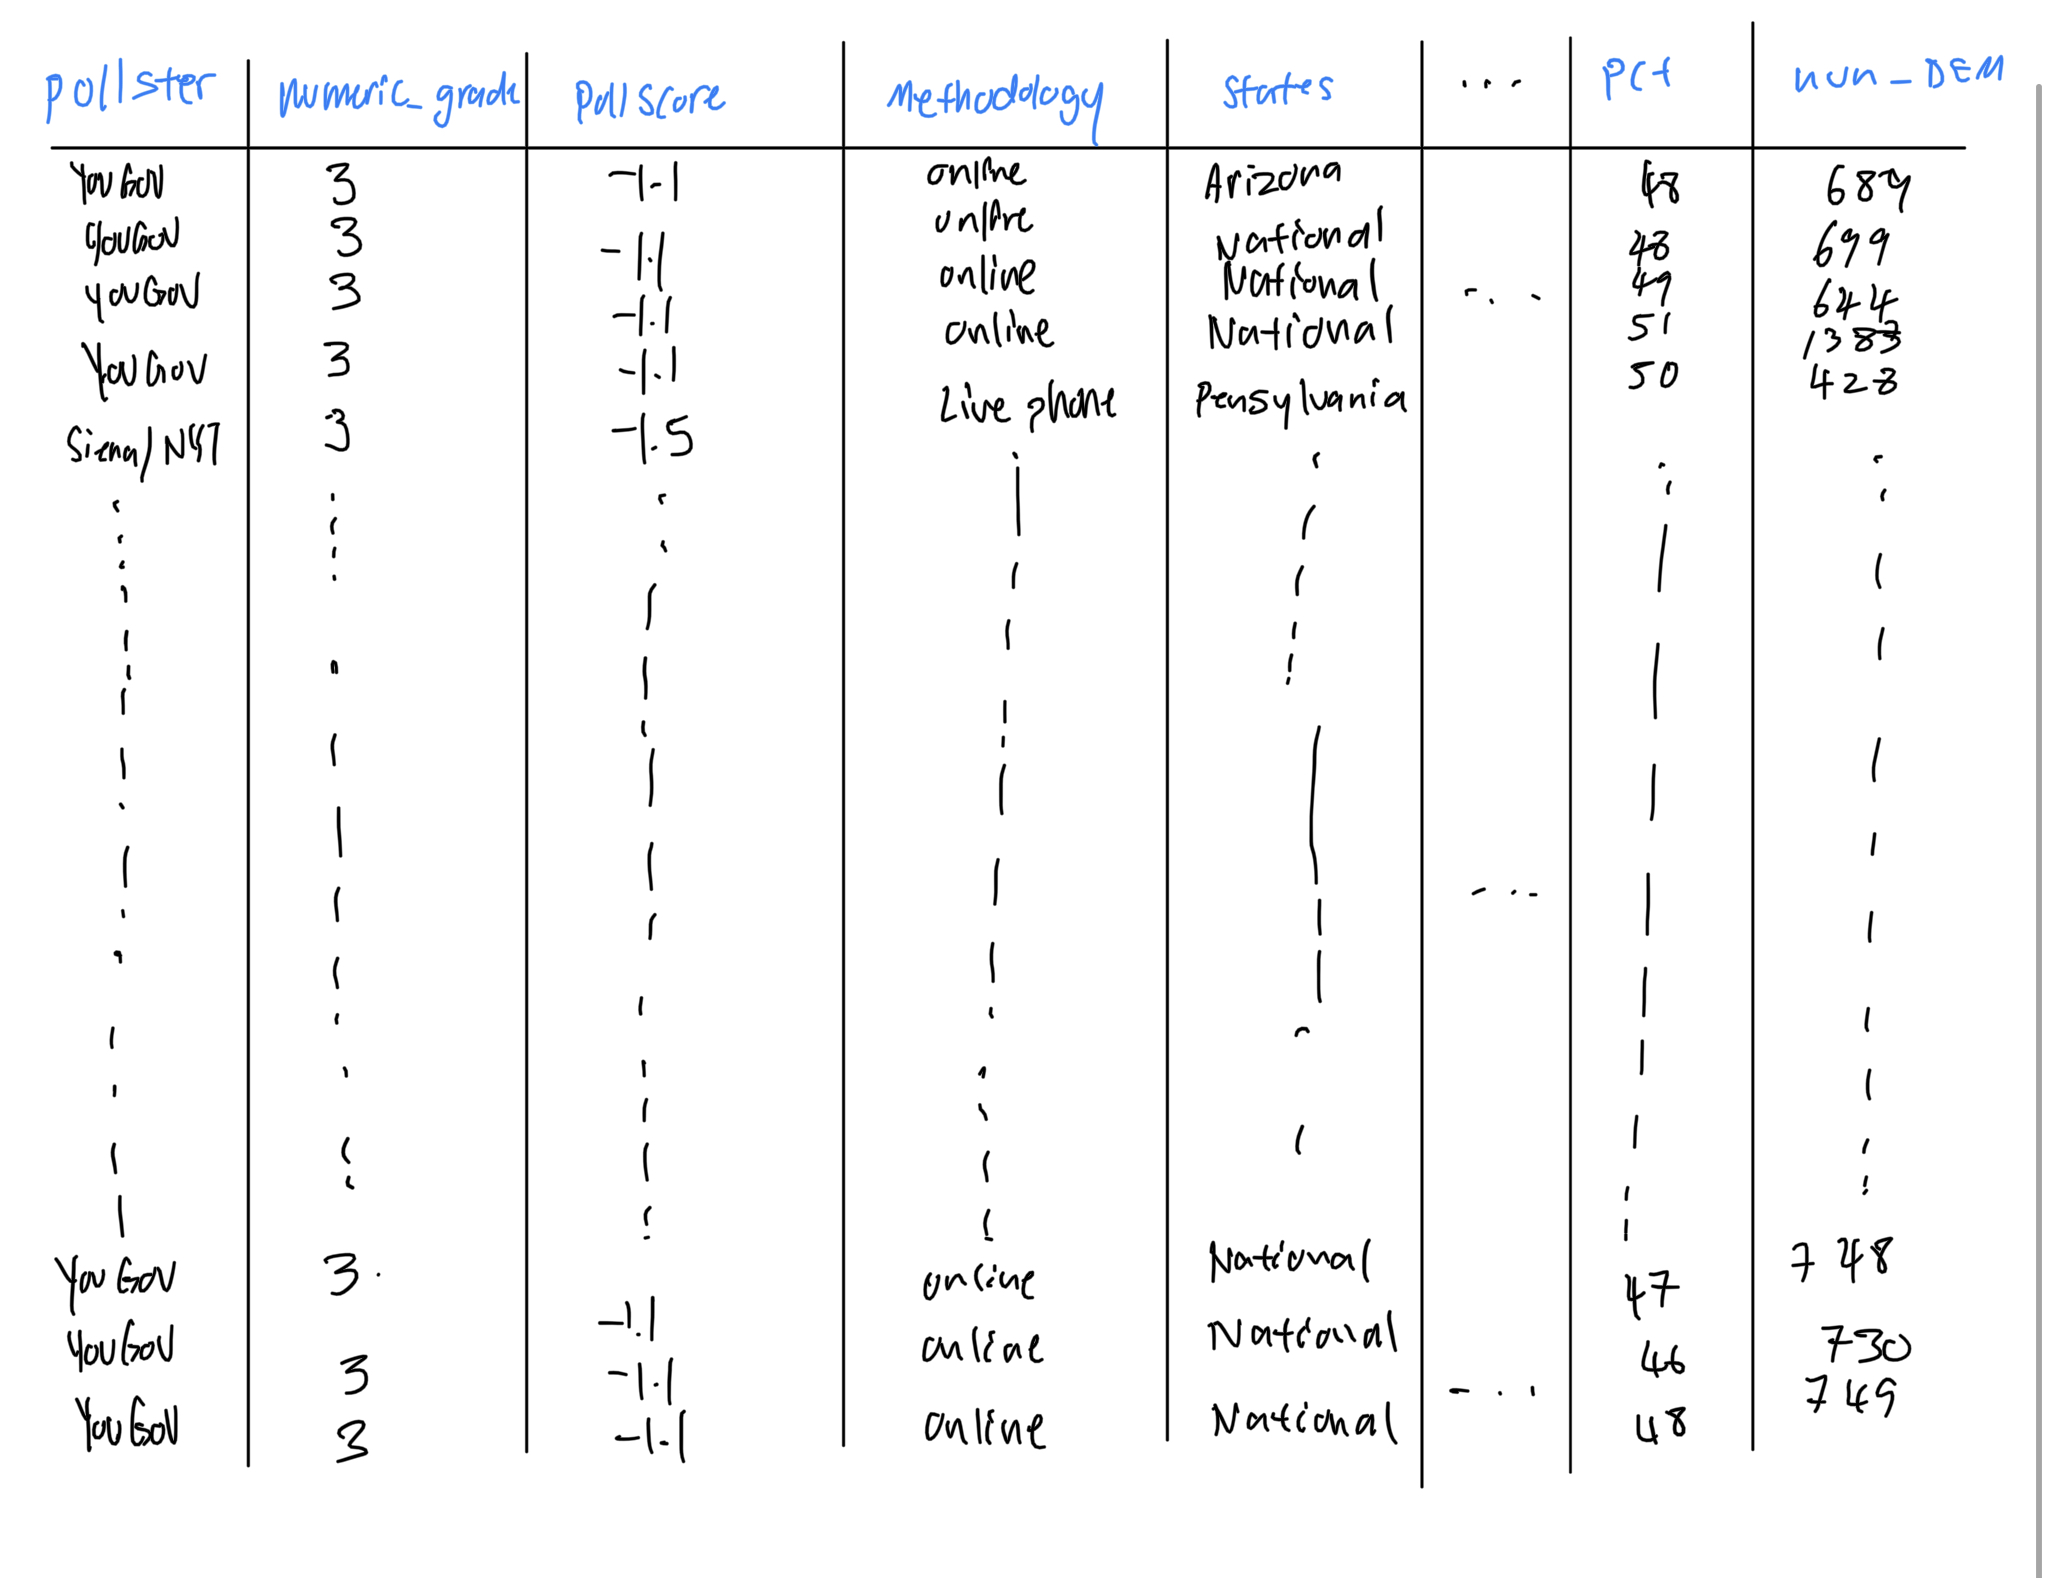 pollster numeric_grade pollscore Methodology states ... Pct num_DEM
YouGov 3 -1.1 online Arizona 48 689
YouGov 3 -1.1 online National 48 699
YouGov 3 -1.1 online National ... 49 644
YouGov 3 -1.1 online National 51 1383
Siena/NYT 3 -1.5 Live phone Pensylvania 50 428
...
YouGov 3. -1.1 online National 47 748
YouGov 3 -1.1 online National 46 730
YouGov 3 -1.1 online National ... 48 749